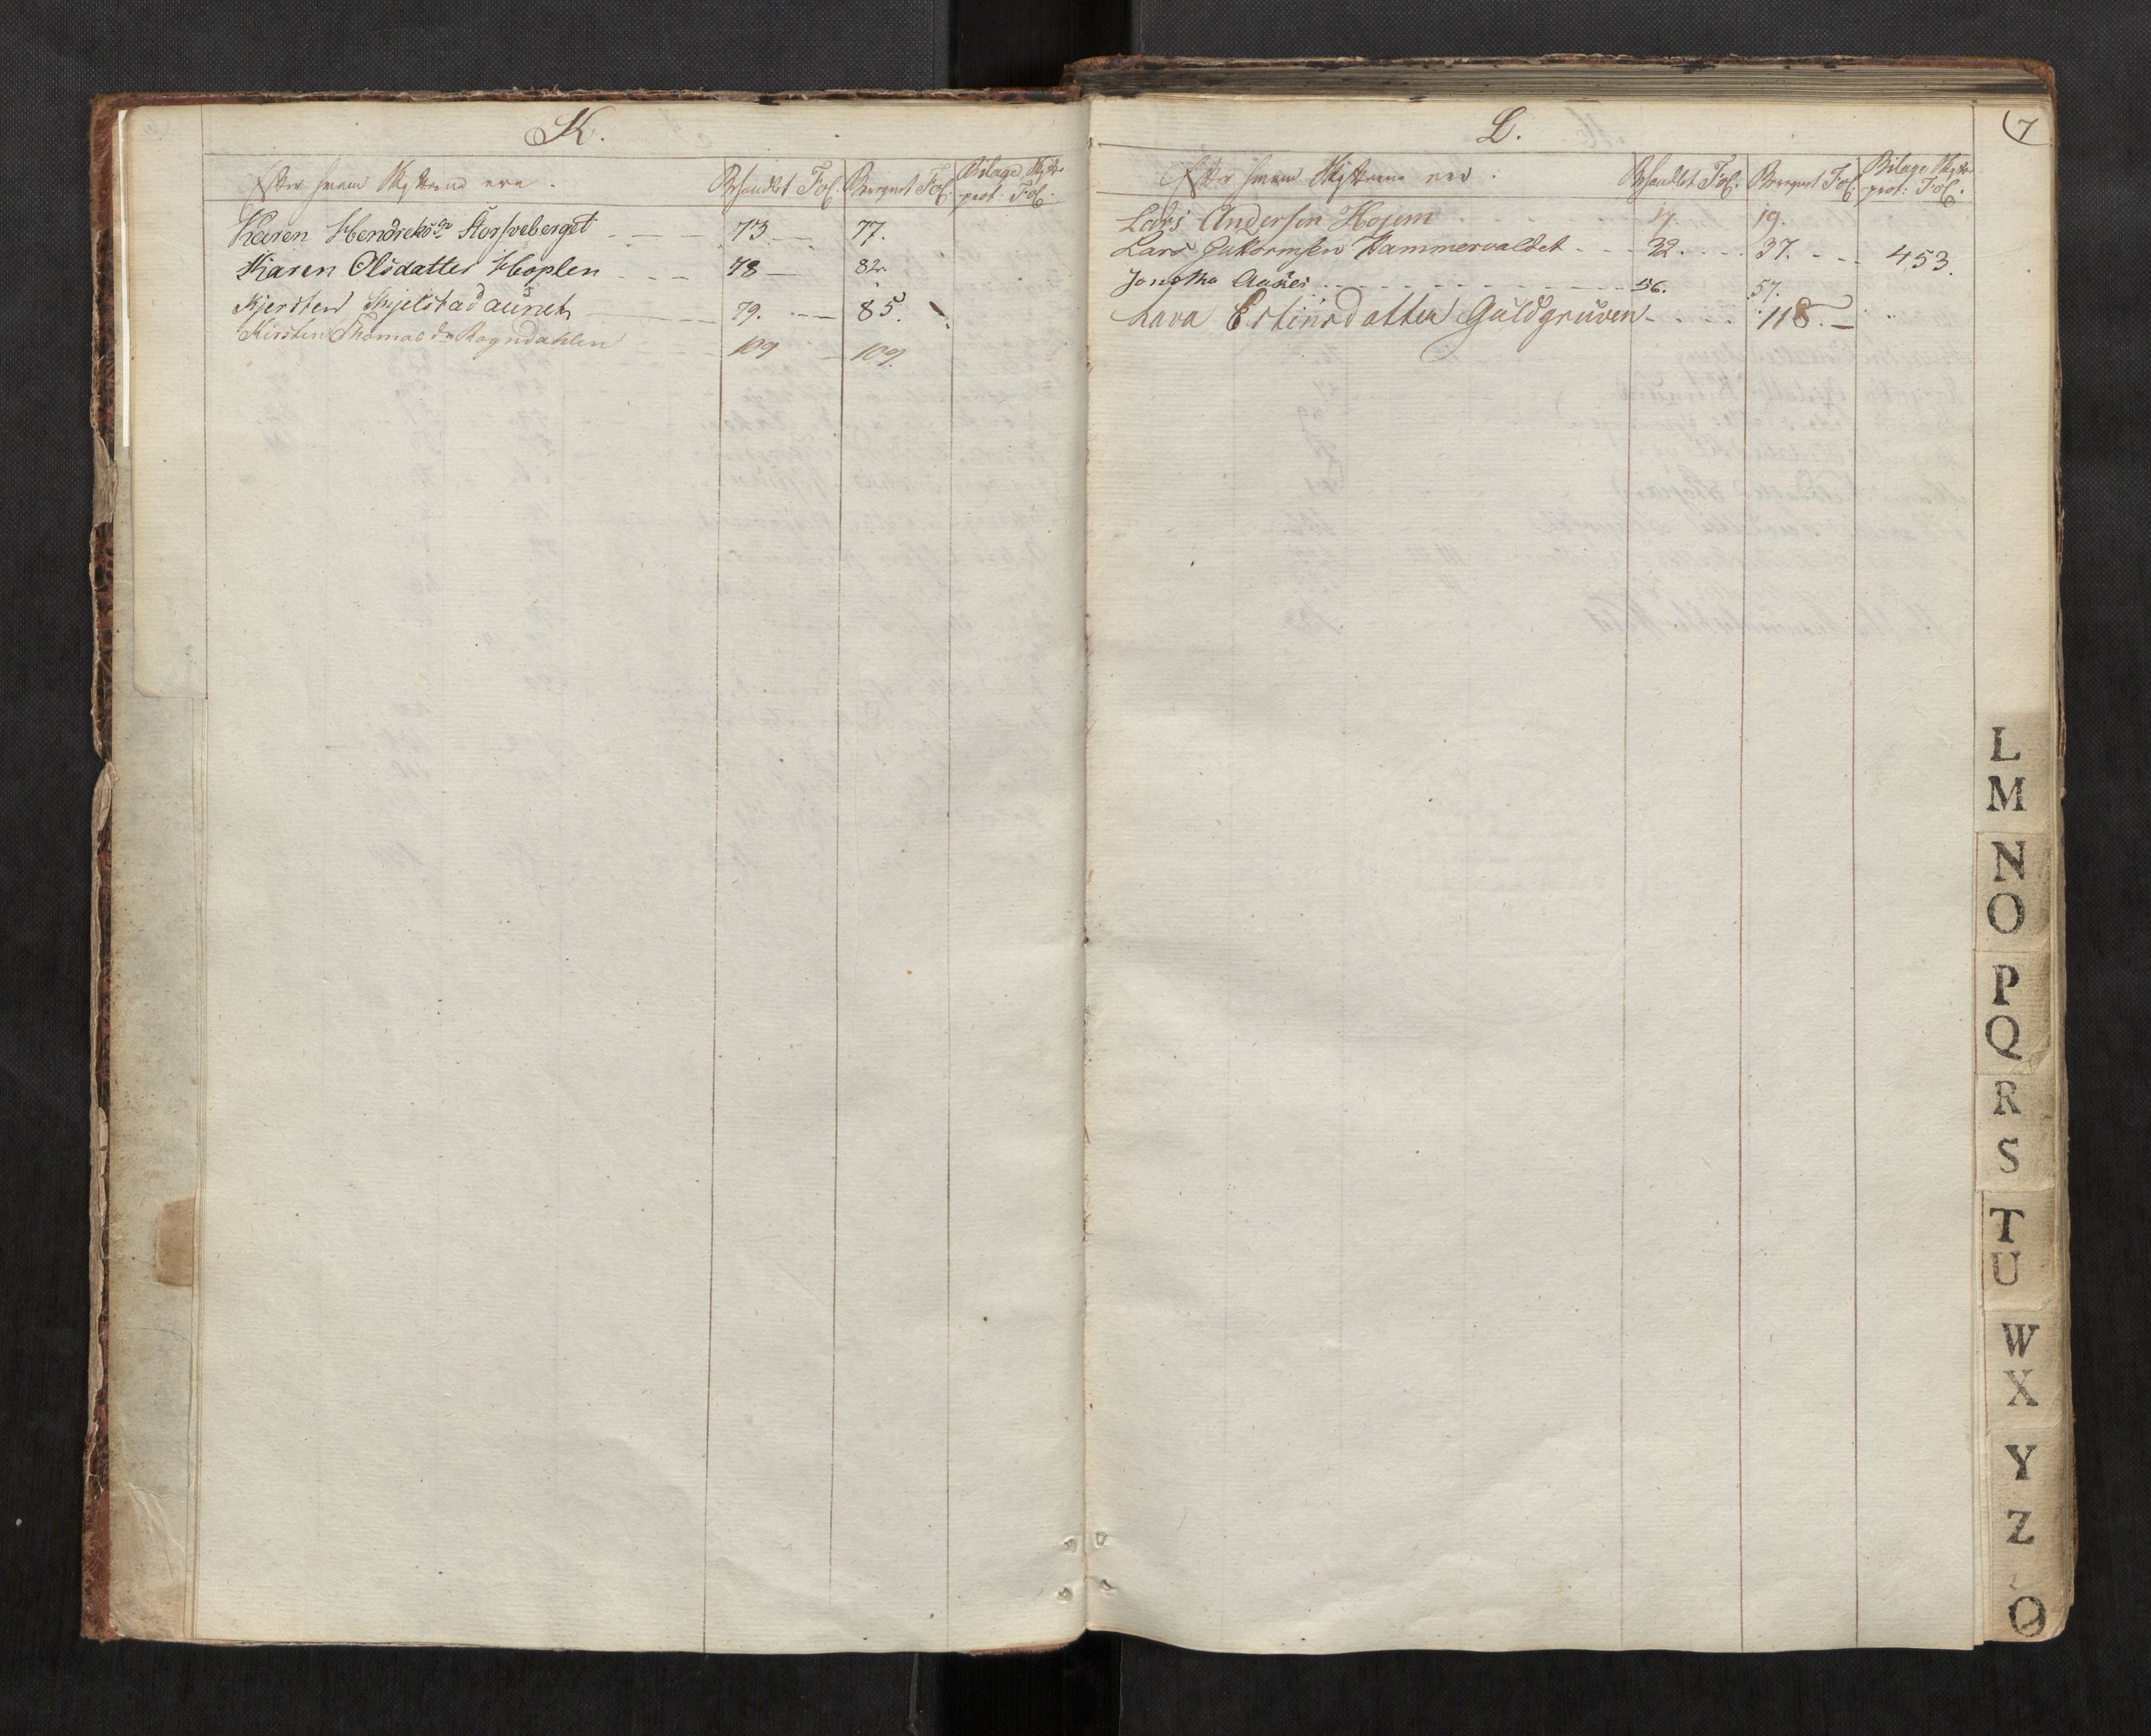 K.
Efter hvem Skifterne ere.
Behandlet Fol.
Beregnet Fol.
Bilage Skifte
prot: Fol:
Karen Hendrichsdr Storsveberget 73 77.
Karen Olsdatter Hoplen 78 82.
Kjersten Skjelstadaunet 79. 85.
Kirsten Thomasdr Rogndahlen 109 109.
L.
7
Efter hvem Skifterne ere:
Behandlet Fol:
Beregnet Fol:
Bilage Skifte
prot: Fol:
Lars Andersen Hojem 17. 19.
Lars Guttormsen Hammervaldet 32. 37. 453.
Aasen 56. 57.
Lava Estensdatter Guldgruven 118.
L
M
N
O
P
Q
R
S
T
U
W
X
Y
Z
Ø